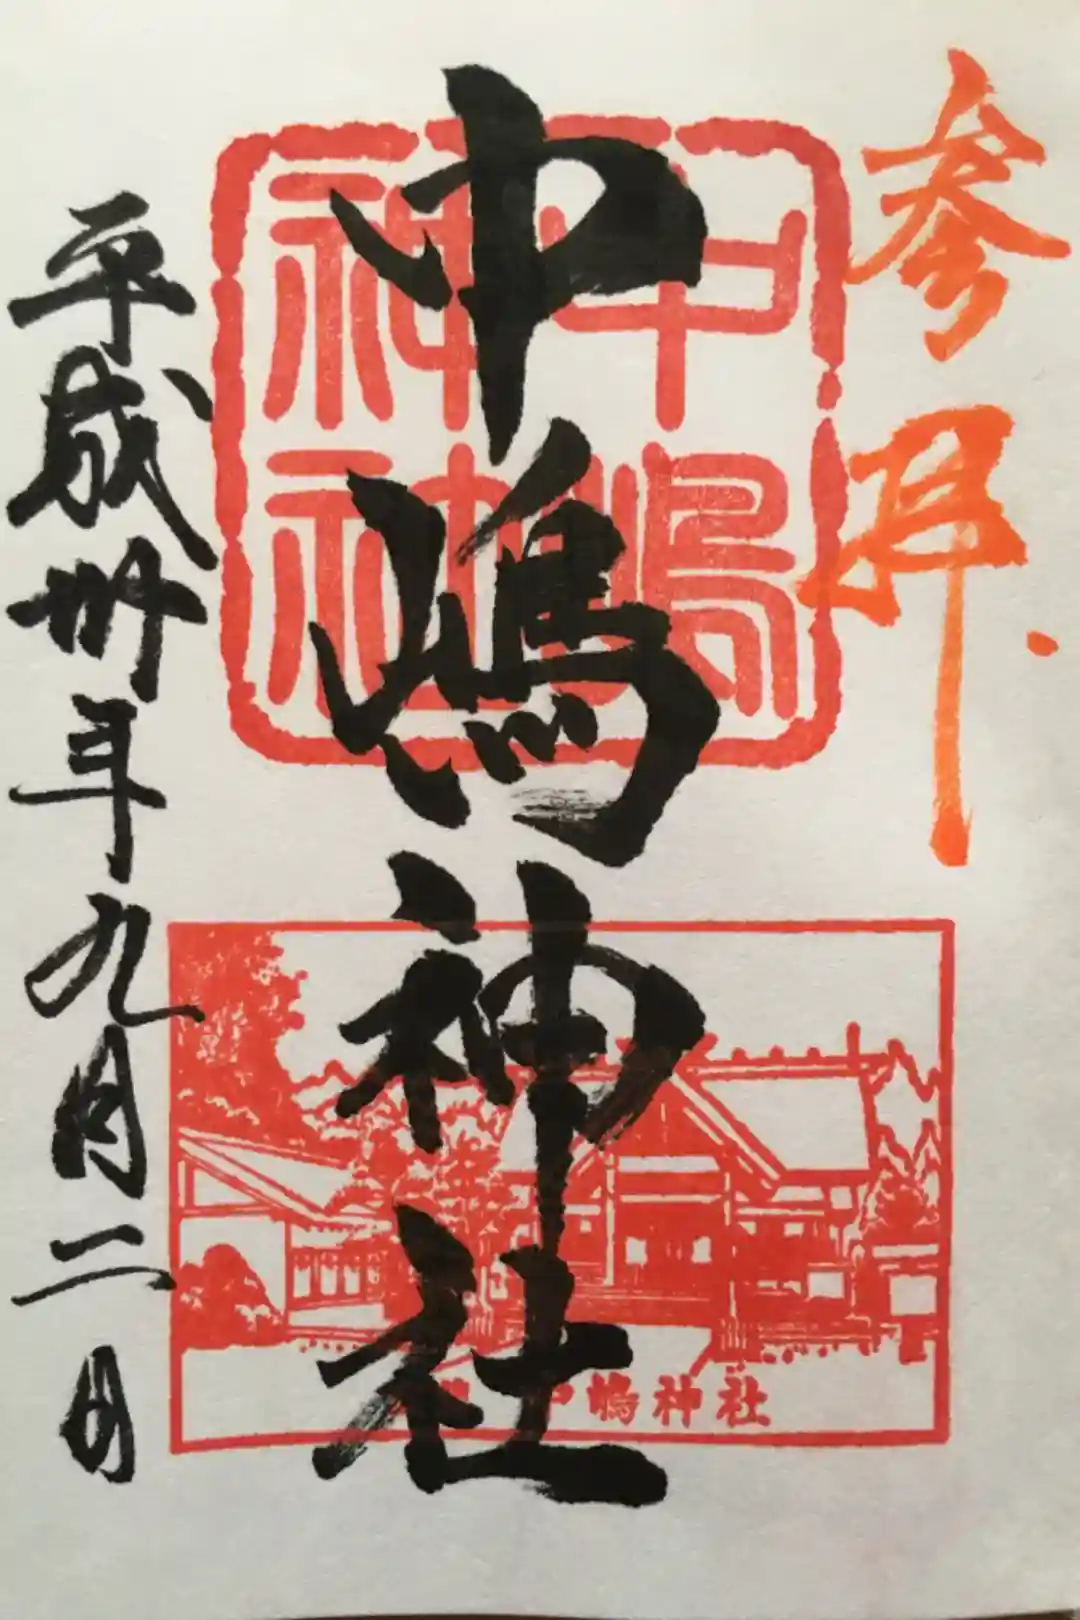 参拝
中嶋神社
中嶋
神社
平成卅年九月二日
中嶋神社